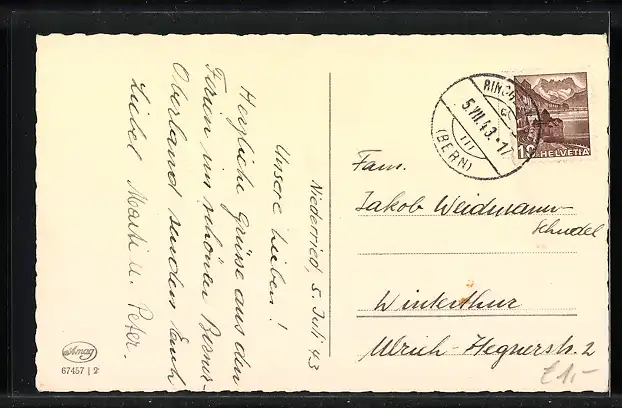 Niederried, 5. Juli 43
Unsere Lieben!
Herzliche Grüsse aus den
Ferien im schönen Berner-
Oberland senden Euch
Liebel Marti u. Peter.
RING
5.VII.43.-17
(BERN)
10
HELVETIA
Fam.
Jakob Weidmann-
Schudel
Winterthur
Ulrich-Hegnerstr. 2
£1,-
Amag
67457 | 2